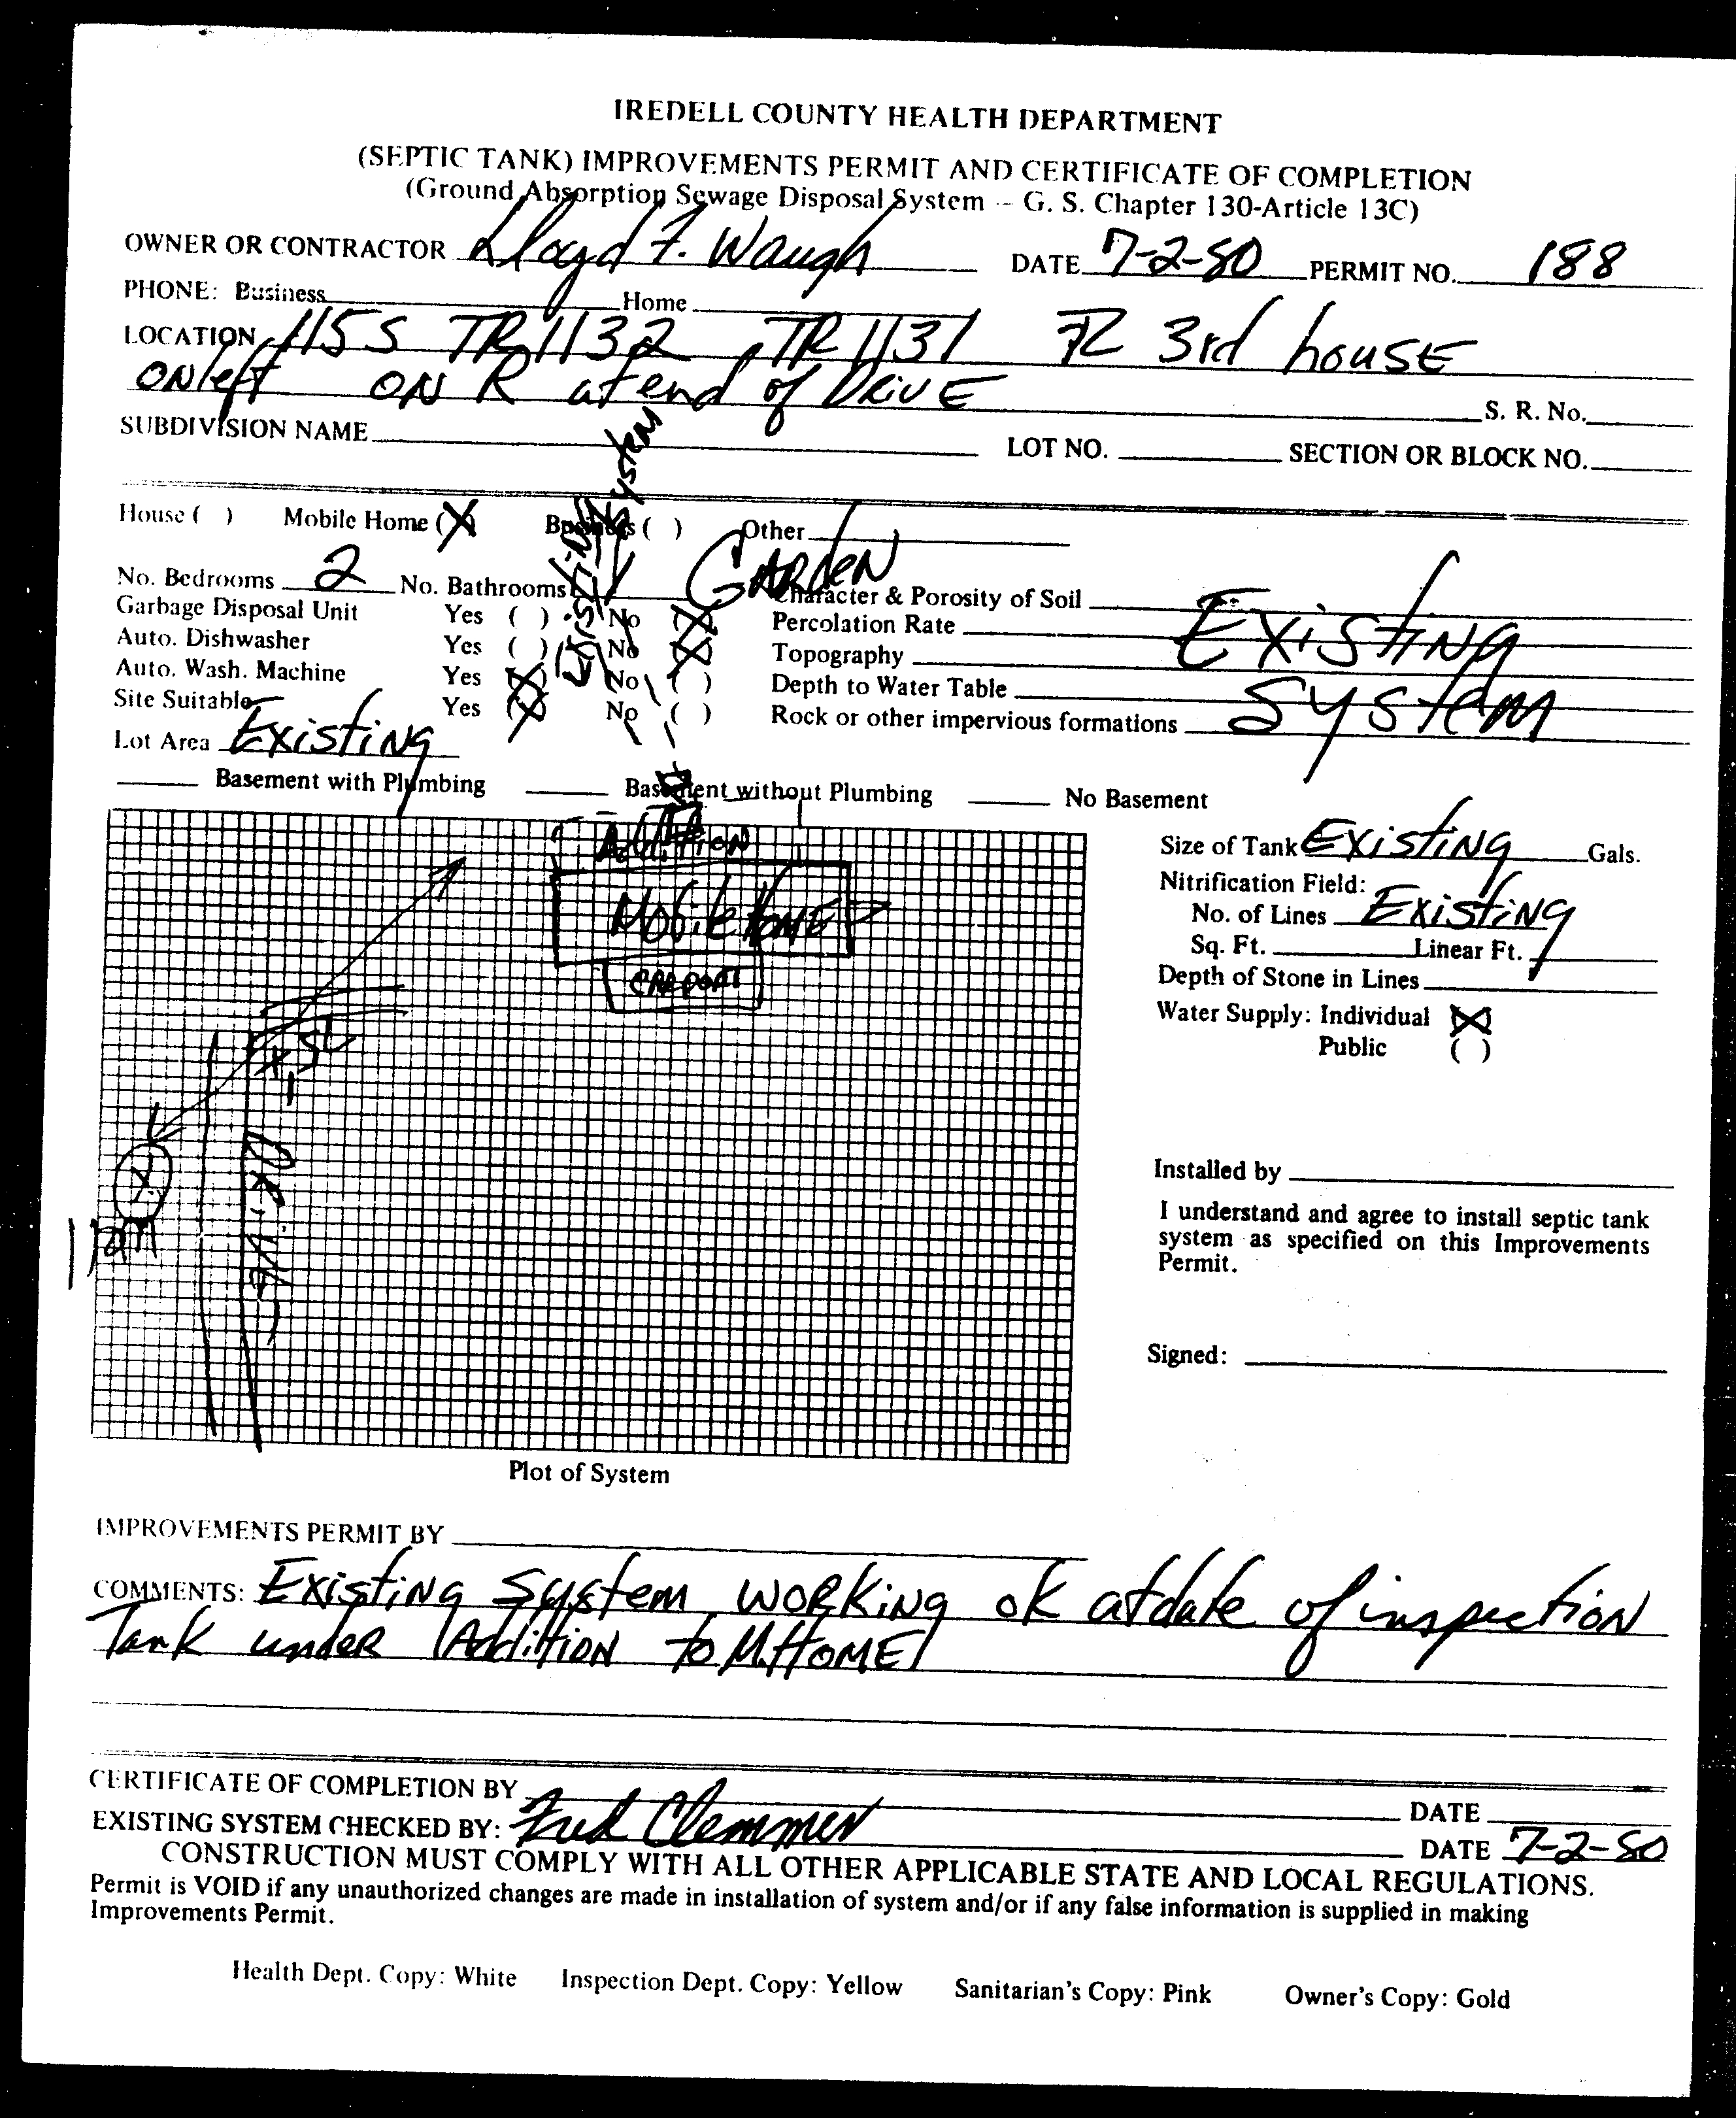 IREDELL COUNTY HEALTH DEPARTMENT
(SEPTIC TANK) IMPROVEMENTS PERMIT AND CERTIFICATE OF COMPLETION
(Ground Absorption Sewage Disposal System -- G. S. Chapter 130-Article 13C)
OWNER OR CONTRACTOR Lloyd F. Waugh DATE 7-2-80 PERMIT NO. 188
PHONE: Business Home
LOCATION 115 S TR 1132 TR 1131 3rd house
ON left ON R at end of DRIVE
S. R. No.
SUBDIVISION NAME LOT NO. SECTION OR BLOCK NO.
House ( ) Mobile Home (X) Business ( ) Other
Existing System
Garden
No. Bedrooms 2 No. Bathrooms Character & Porosity of Soil
Garbage Disposal Unit Yes ( ) No (X) Percolation Rate Existing
Auto. Dishwasher Yes ( ) No (X) Topography
Auto. Wash. Machine Yes (X) No ( ) Depth to Water Table System
Site Suitable Yes (X) No ( ) Rock or other impervious formations
Lot Area Existing
Basement with Plumbing Basement without Plumbing No Basement
Addition
Mobile Home
CARPORT
Exist
Drive
Size of Tank Existing Gals.
Nitrification Field:
No. of Lines Existing
Sq. Ft. Linear Ft.
Depth of Stone in Lines
Water Supply: Individual (X)
Public ( )
Installed by
I understand and agree to install septic tank
system as specified on this Improvements
Permit.
Signed:
Plot of System
IMPROVEMENTS PERMIT BY
COMMENTS: Existing System working ok at date of inspection
Tank under Addition to M.HOME
CERTIFICATE OF COMPLETION BY DATE
EXISTING SYSTEM CHECKED BY: Fred Clemmer DATE 7-2-80
CONSTRUCTION MUST COMPLY WITH ALL OTHER APPLICABLE STATE AND LOCAL REGULATIONS.
Permit is VOID if any unauthorized changes are made in installation of system and/or if any false information is supplied in making
Improvements Permit.
Health Dept. Copy: White Inspection Dept. Copy: Yellow Sanitarian's Copy: Pink Owner's Copy: Gold